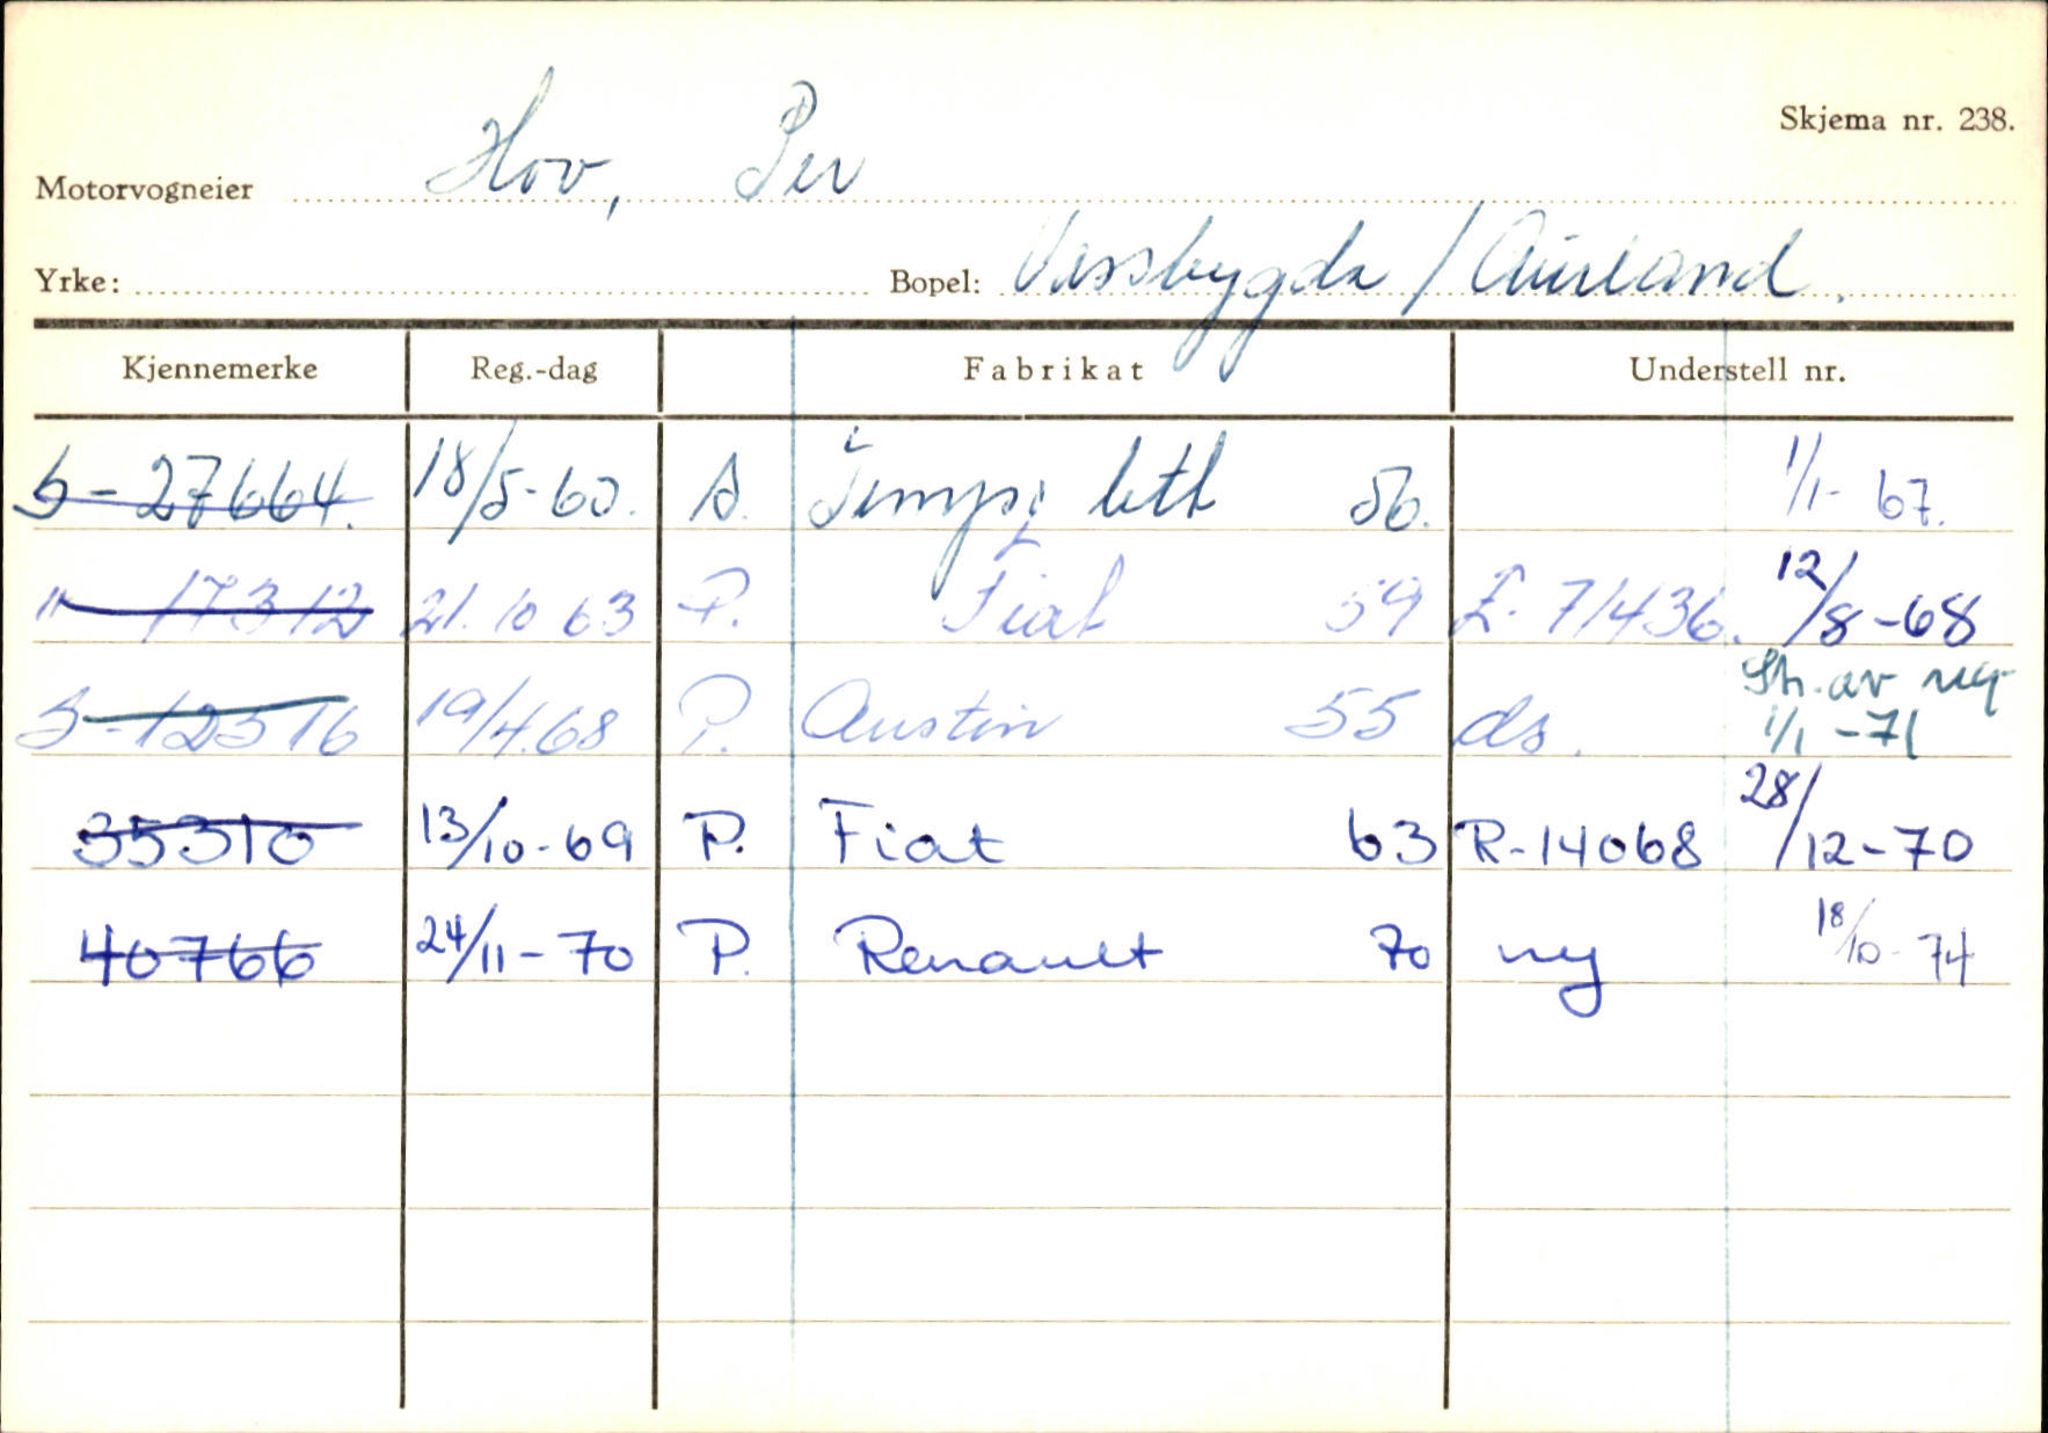 Skjema nr. 238.
Motorvogneier Hov, Per
Yrke: Bopel: Vassbygda / Aurland.
Kjennemerke Reg.-dag Fabrikat Understell nr.
S-27664. 18/5-60. Tempo lett 56. 1/1-67.
" 17312 21.10 63 P. Fiat 59 Z-71436. 12/8-68
S-12516 19/4.68 P. Austin 55 ds. Sh. av reg 1/1-71
35310 13/10-69 P. Fiat 63 R-14068 28/12-70
40766 24/11-70 P. Renault 70 ny 18/10-74